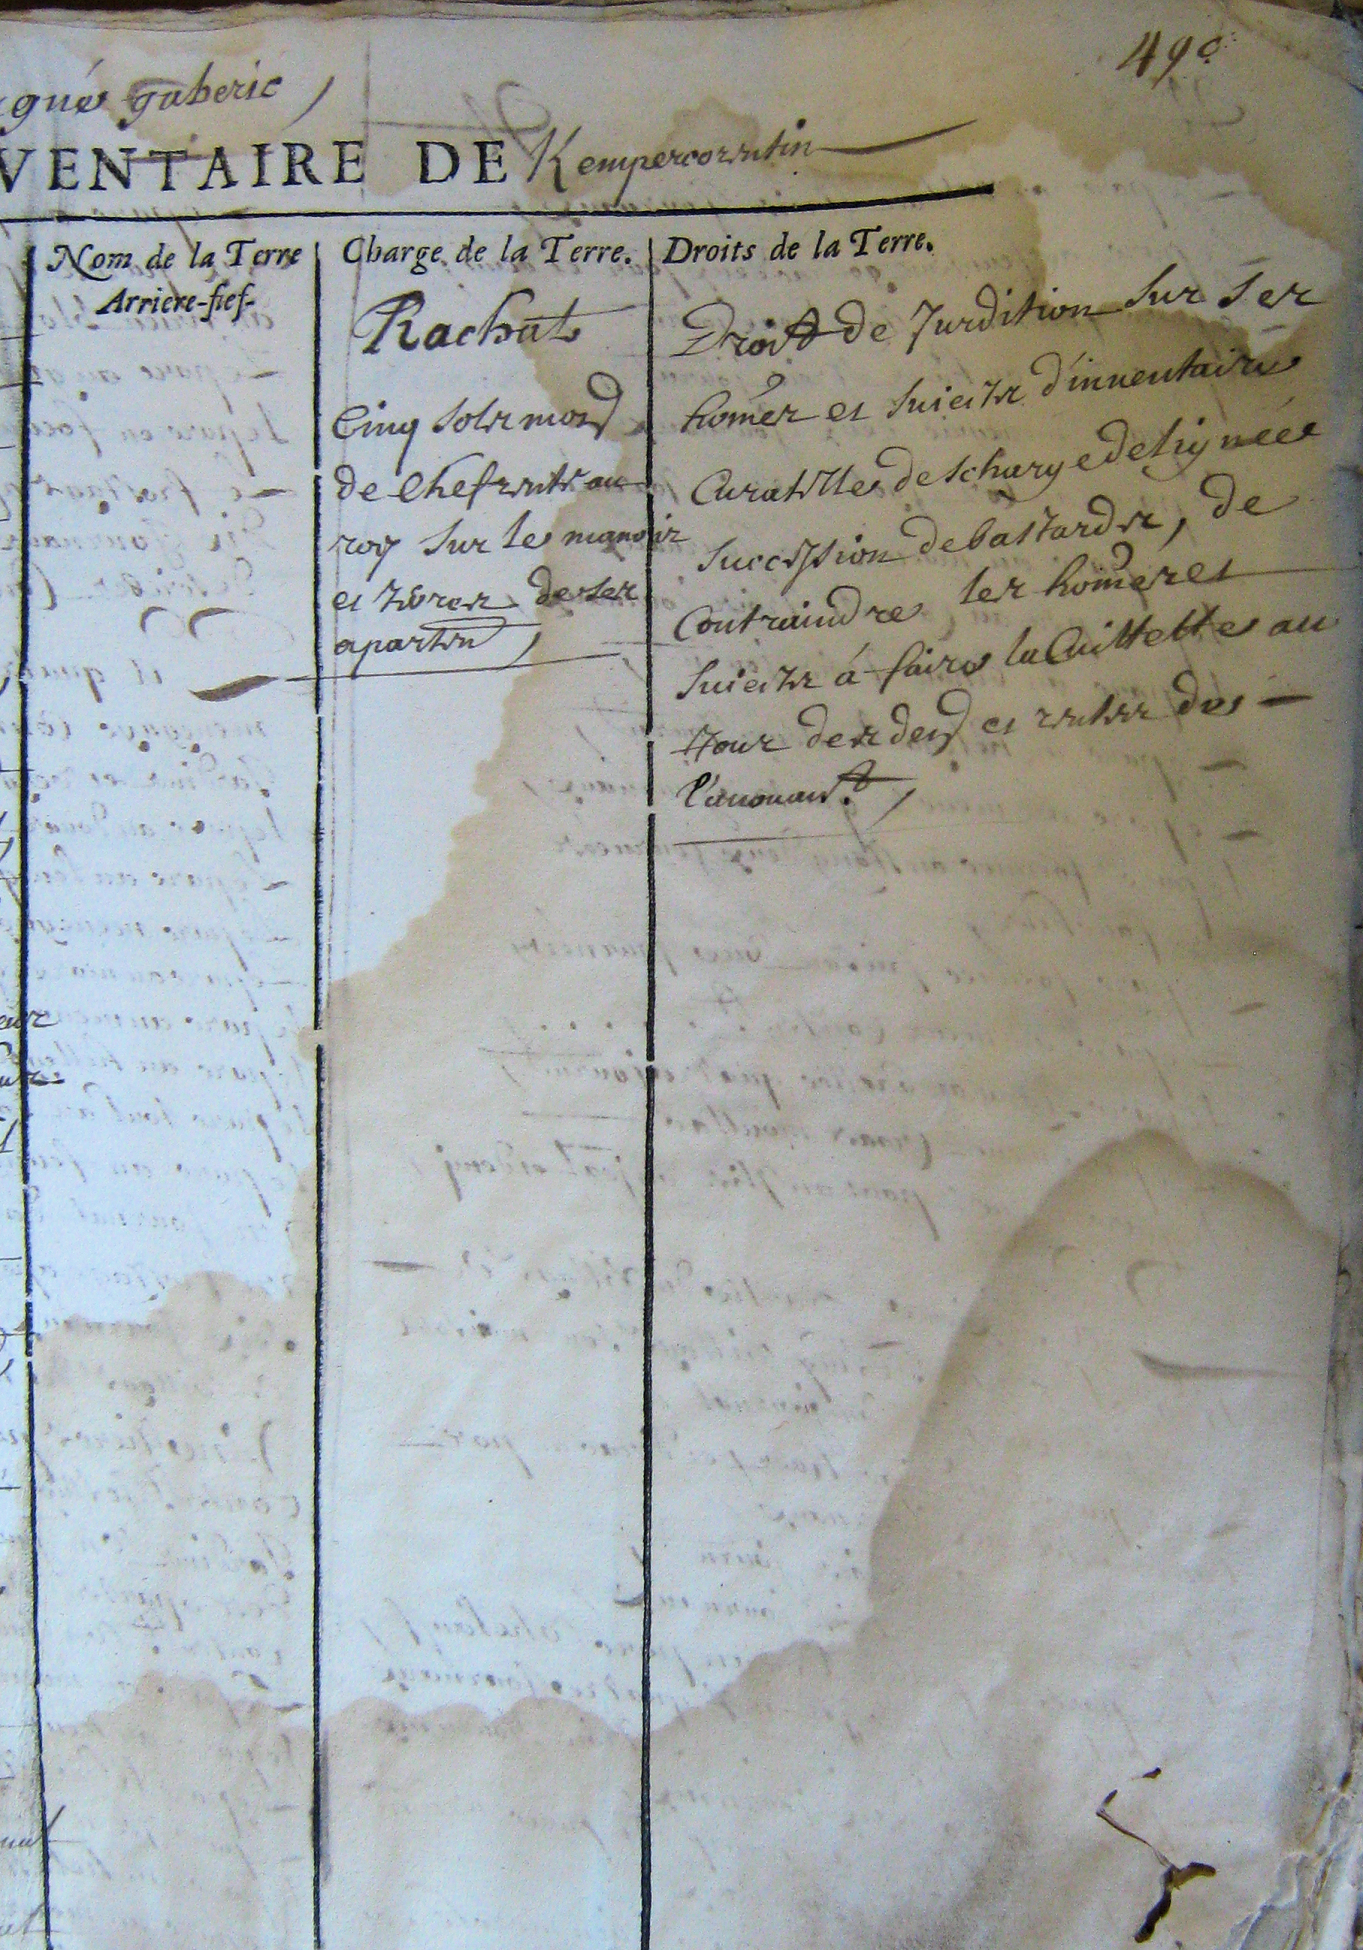 490
gué gaberic /
VENTAIRE DE Kempercorentin
Nom de la Terre
Arriere-fief
Charge de la Terre.
Rachat
Cinq sols mon
de Chefrente au
roy sur le manoir
et terres de ses
aparten /
Droits de la Terre.
Droit de Jurdition sur ses
homes et suiects d'inuentaire
Curatelle descharge de lignéé
succession de bastards, de
Contraindre les homes et
suiects á faire la Cuillette au
tour des des et rentes dus
l'auouant /